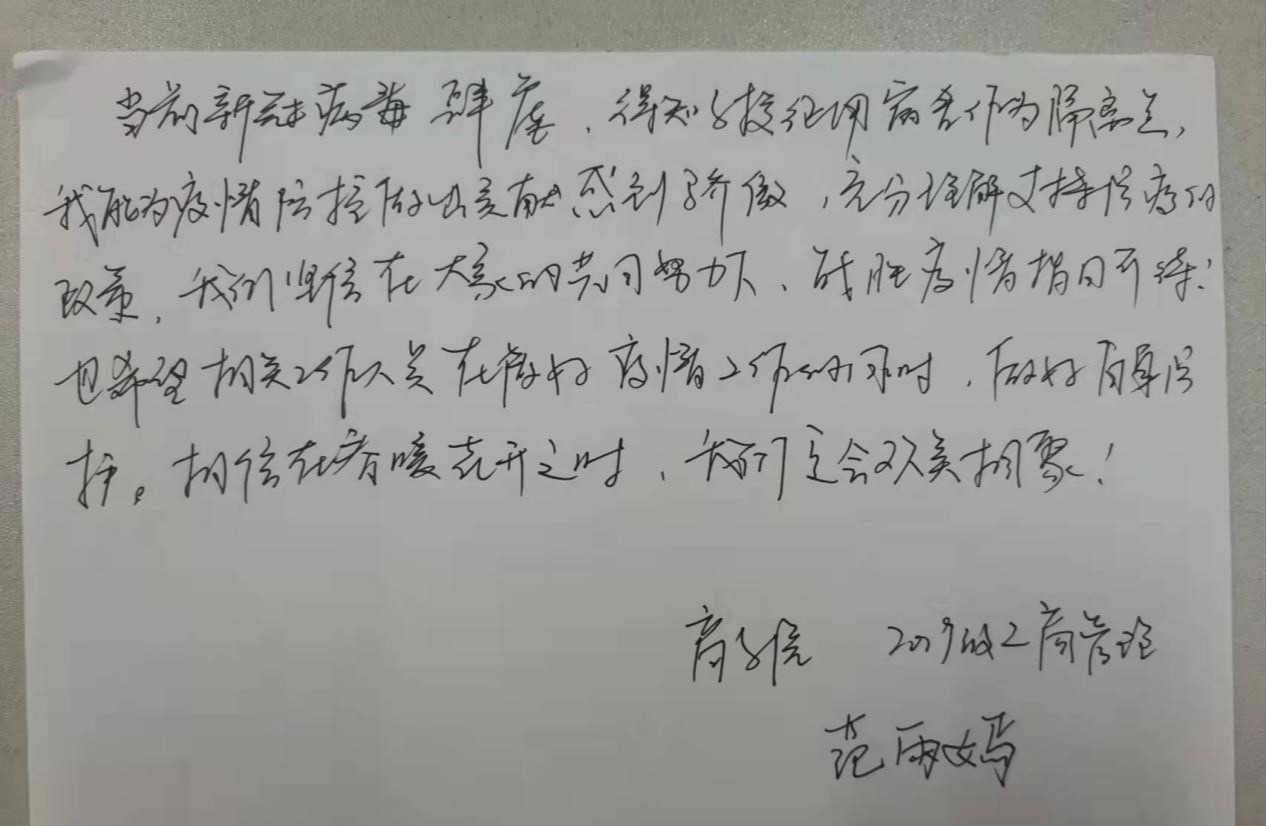 当前新冠病毒肆虐，得知学校征用宿舍作为隔离点，
我能为疫情防控做出贡献感到骄傲，充分理解支持防疫的
政策，我们坚信在大家的共同努力下、战胜疫情指日可待！
也希望相关工作人员在做好疫情工作的同时，做好自身防
护。相信在春暖花开之时，我们定会欢笑相聚！
商学院 2019级工商管理
范雨嫣